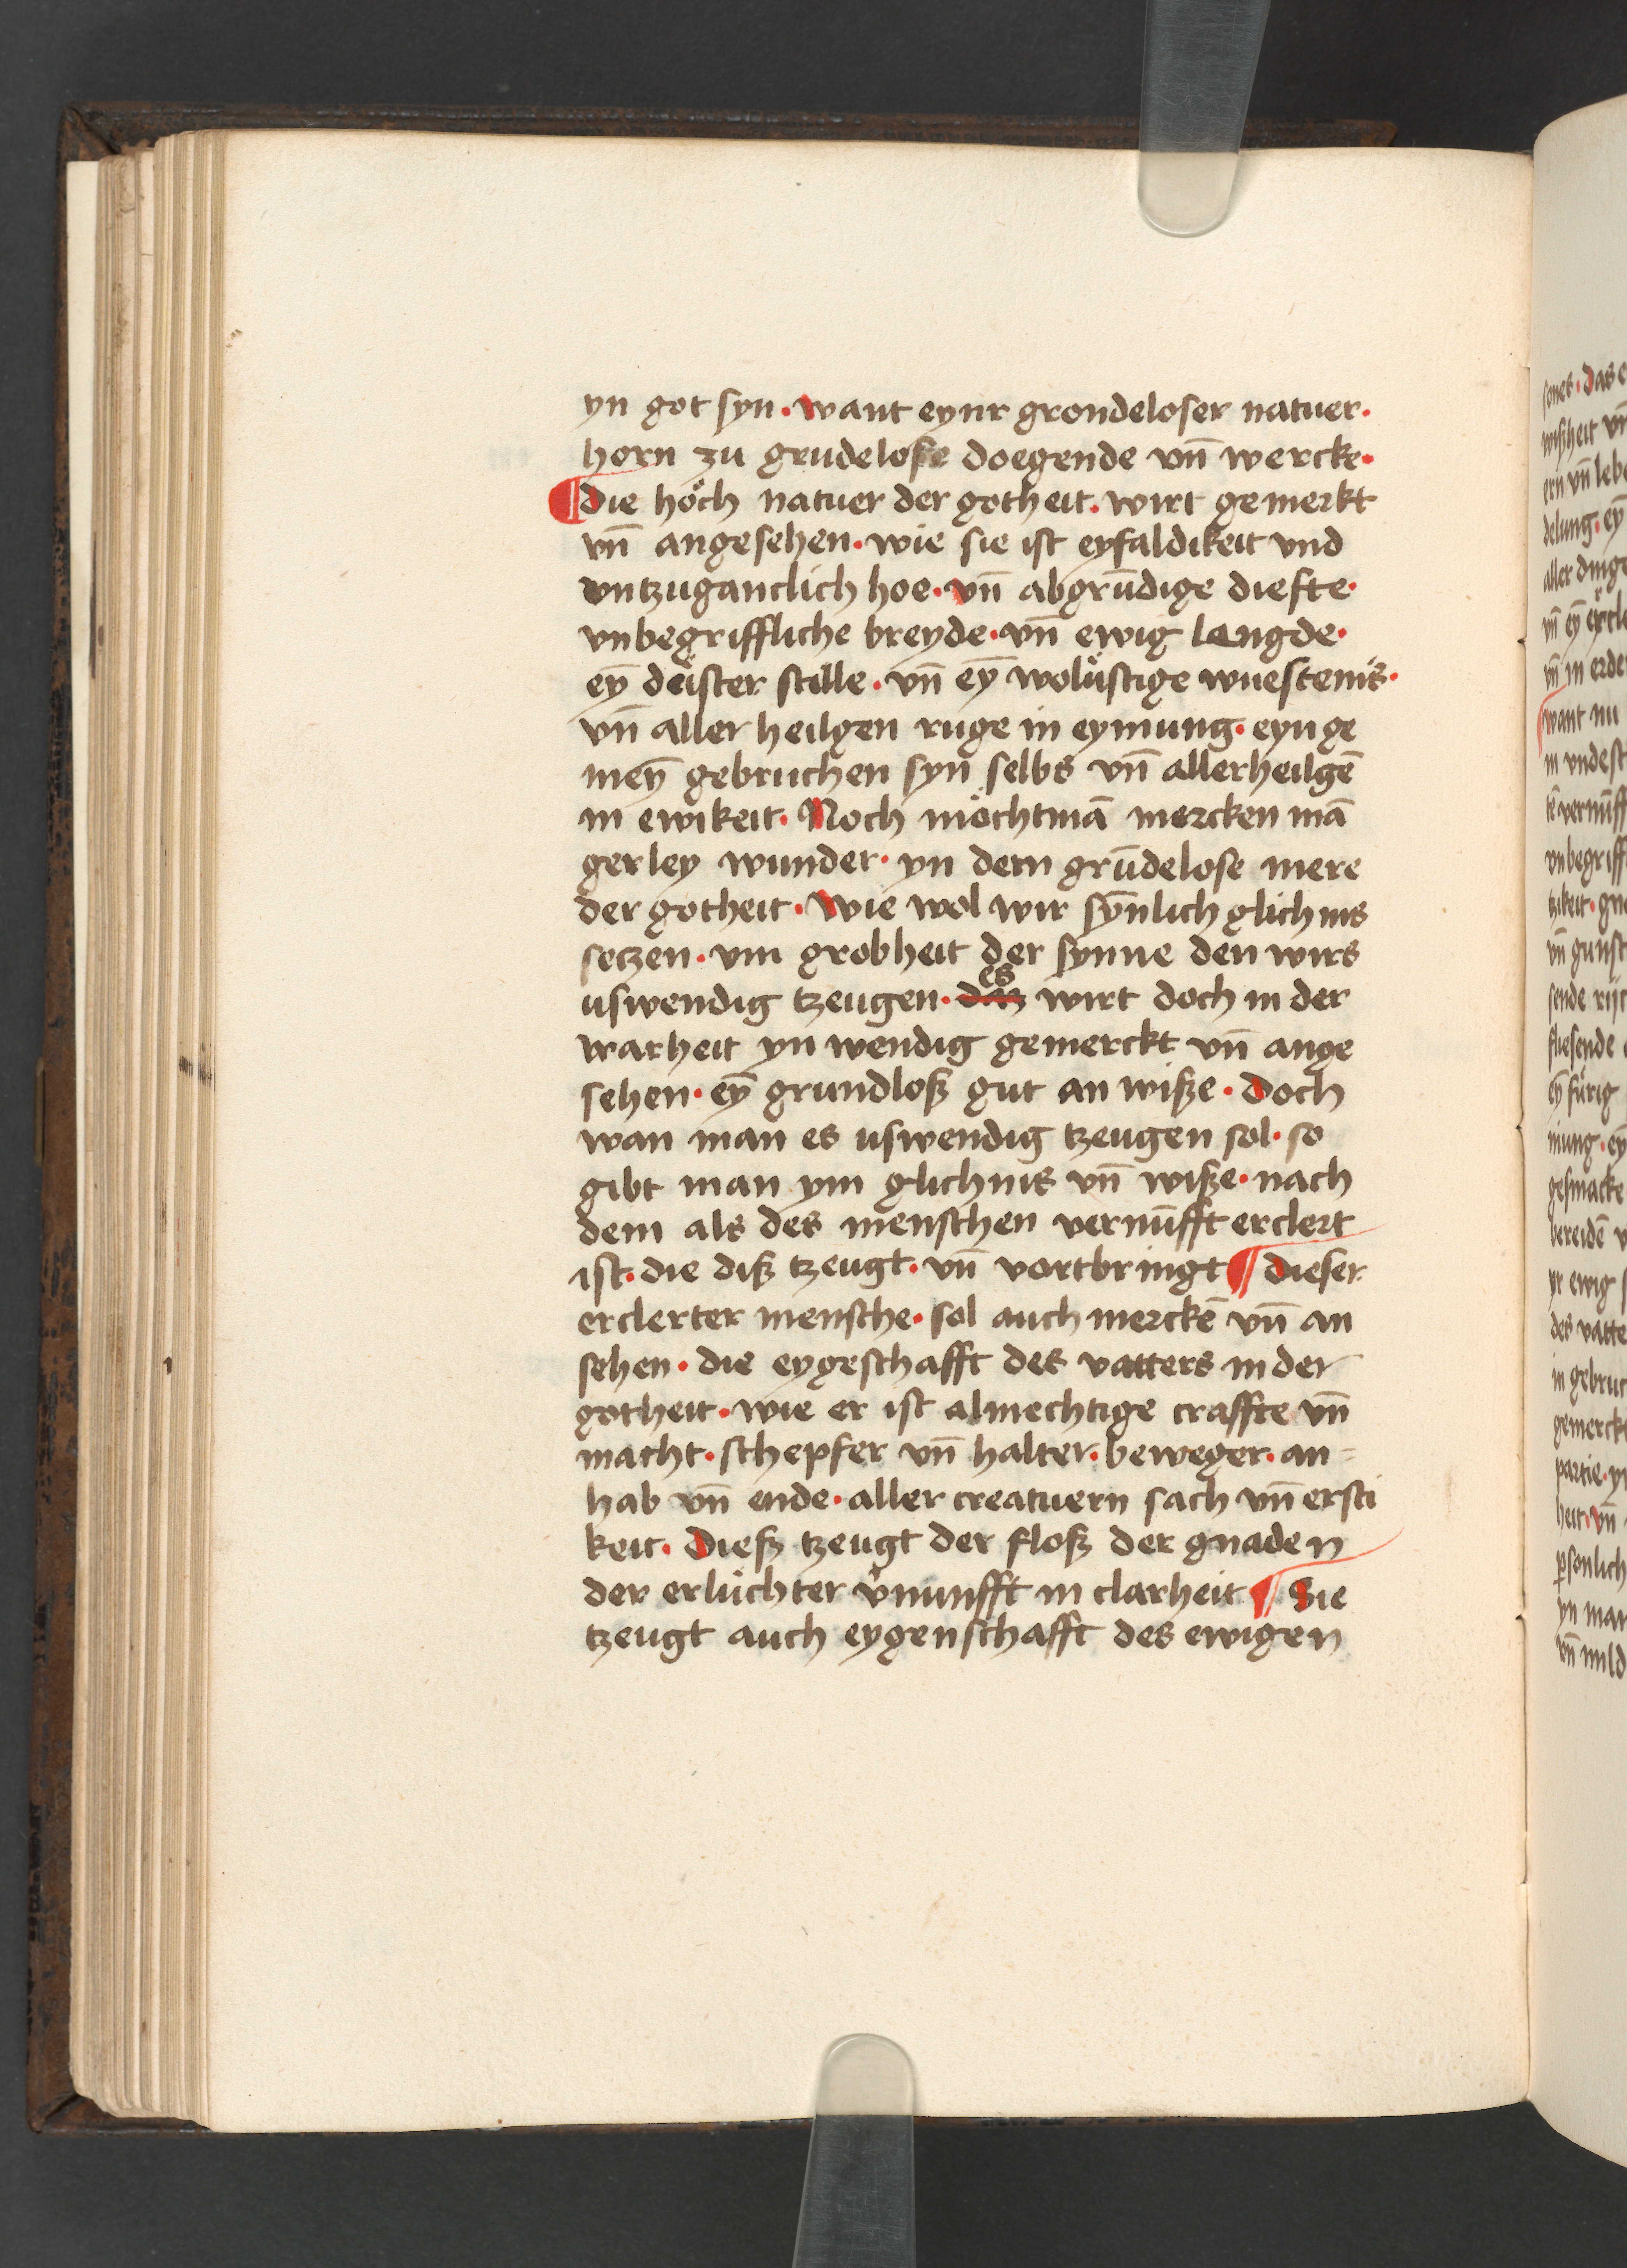 yn got syn · want eynr grondeloser natuer ·
horn zu grudelose doegende vn̄ wercke ·
¶ die hoͤch natuer der gotheit · wirt gemerkt
vn̄ angesehen · wie sie ist eyfaldikeit vnd
vntzuganclich hoe · vn̄ abgrūdige diefte ·
vnbegriffliche breyde · vn̄ ewig langde ·
eȳ deister stille · vn̄ eȳ woluͤstige wuestenis ·
vn̄ aller heilgen ruge in eymung · eyn ge
meȳ gebruchen syn selbs vn̄ allerheilgē
in ewikeit · Noch moͤchtmā mercken mā
gerley wunder · yn dem grūdelose mere
der gotheit · Wie wol wir sȳnlich glichnis
setzen · vm grobheit der synne den wirs
uswendig tzeugen · es wirt doch in der
warheit yn wendig gemerckt vn̄ ange
sehen · eȳ grundloß gut an wiße · Doch
wan man es uswendig tzeugen sol · so
gibt man ym glichnis vn̄ wiße · nach
dem als des menschen vernūfft erclert
ist · die diß tzeugt · vn̄ vortbringt ¶ dieser
erclerter mensche · sol auch merckē vn̄ an
sehen · die eygeschafft des vatters in der
gotheit · wie er ist almechtige craffte vn̄
macht · schepfer vn̄ halter · beweger · an=
hab vn̄ ende · aller creatuern sach vn̄ ersti
keit · Dieß tzeugt der floß der gnaden
der erluͤchter v̾nunfft in clarheit ¶ Sie
tzeugt auch eygenschafft des ewigen
sones · Das
wißheit vn̄
ern vn̄ leb
delung · eȳ
aller ding
vn̄ in erde
want nu
vnbegriff
vn̄ gunst
gesmacke
yr ewig
des vatte
in gebruc
gemerckt
heit · vn̄
yn man
vn̄ mild